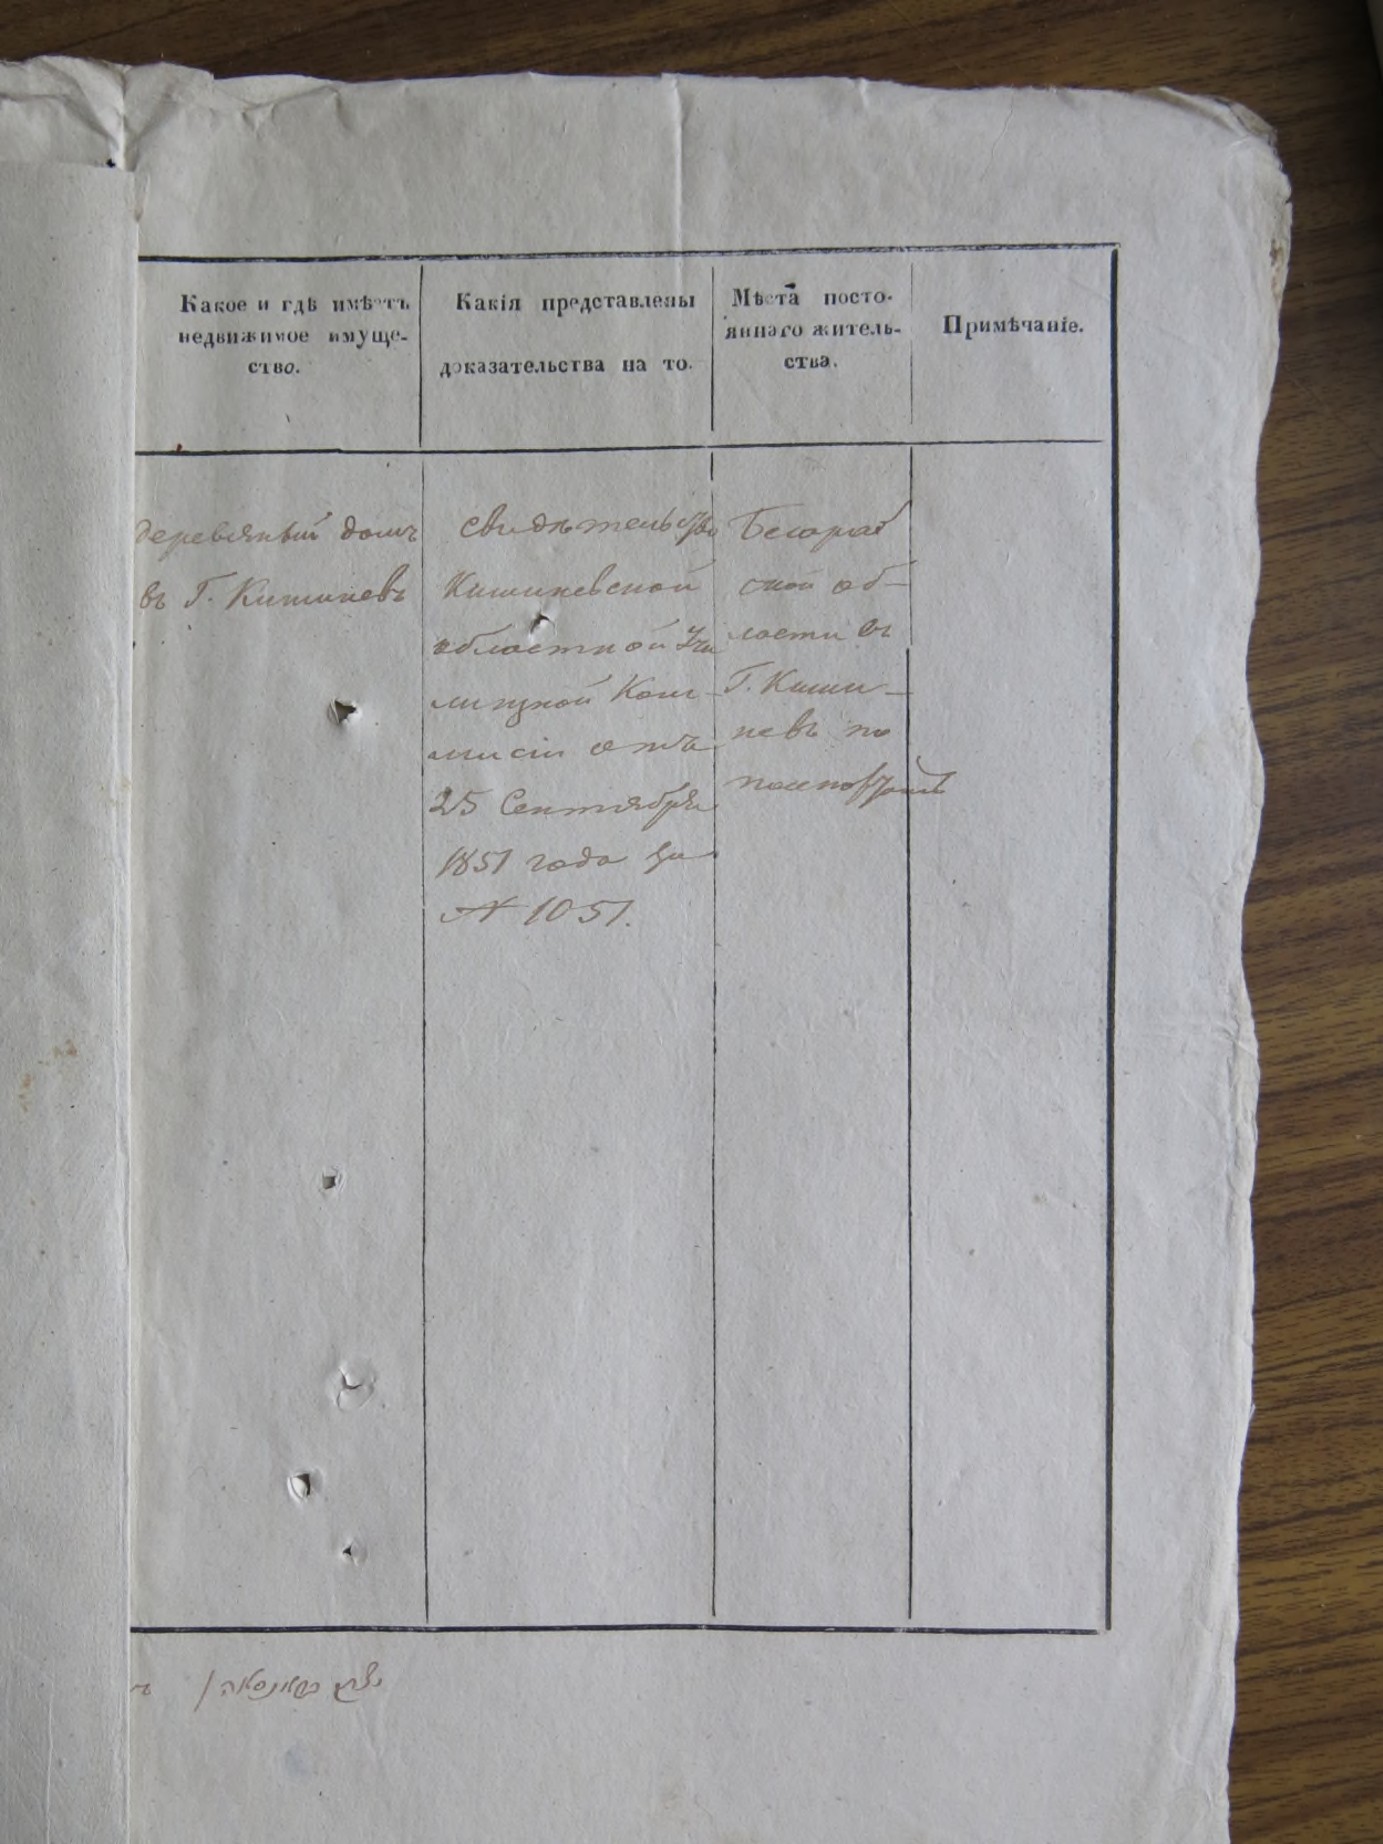 Какое и гдѣ имѣетъ
недвижимое имуще-
ство.
Какія представлены
доказательства на то.
Мѣста посто-
яннаго житель-
ства.
Примѣчаніе.
деревяный домъ
въ Г. Кишиневъ
свидѣтельство
Кишиневской
областной Учи
лищной Ком-
мисіи отъ
25 Сентября
1851 года за
№ 1051.
Бесараб
ской об-
ласти въ
Г. Киши-
невъ по